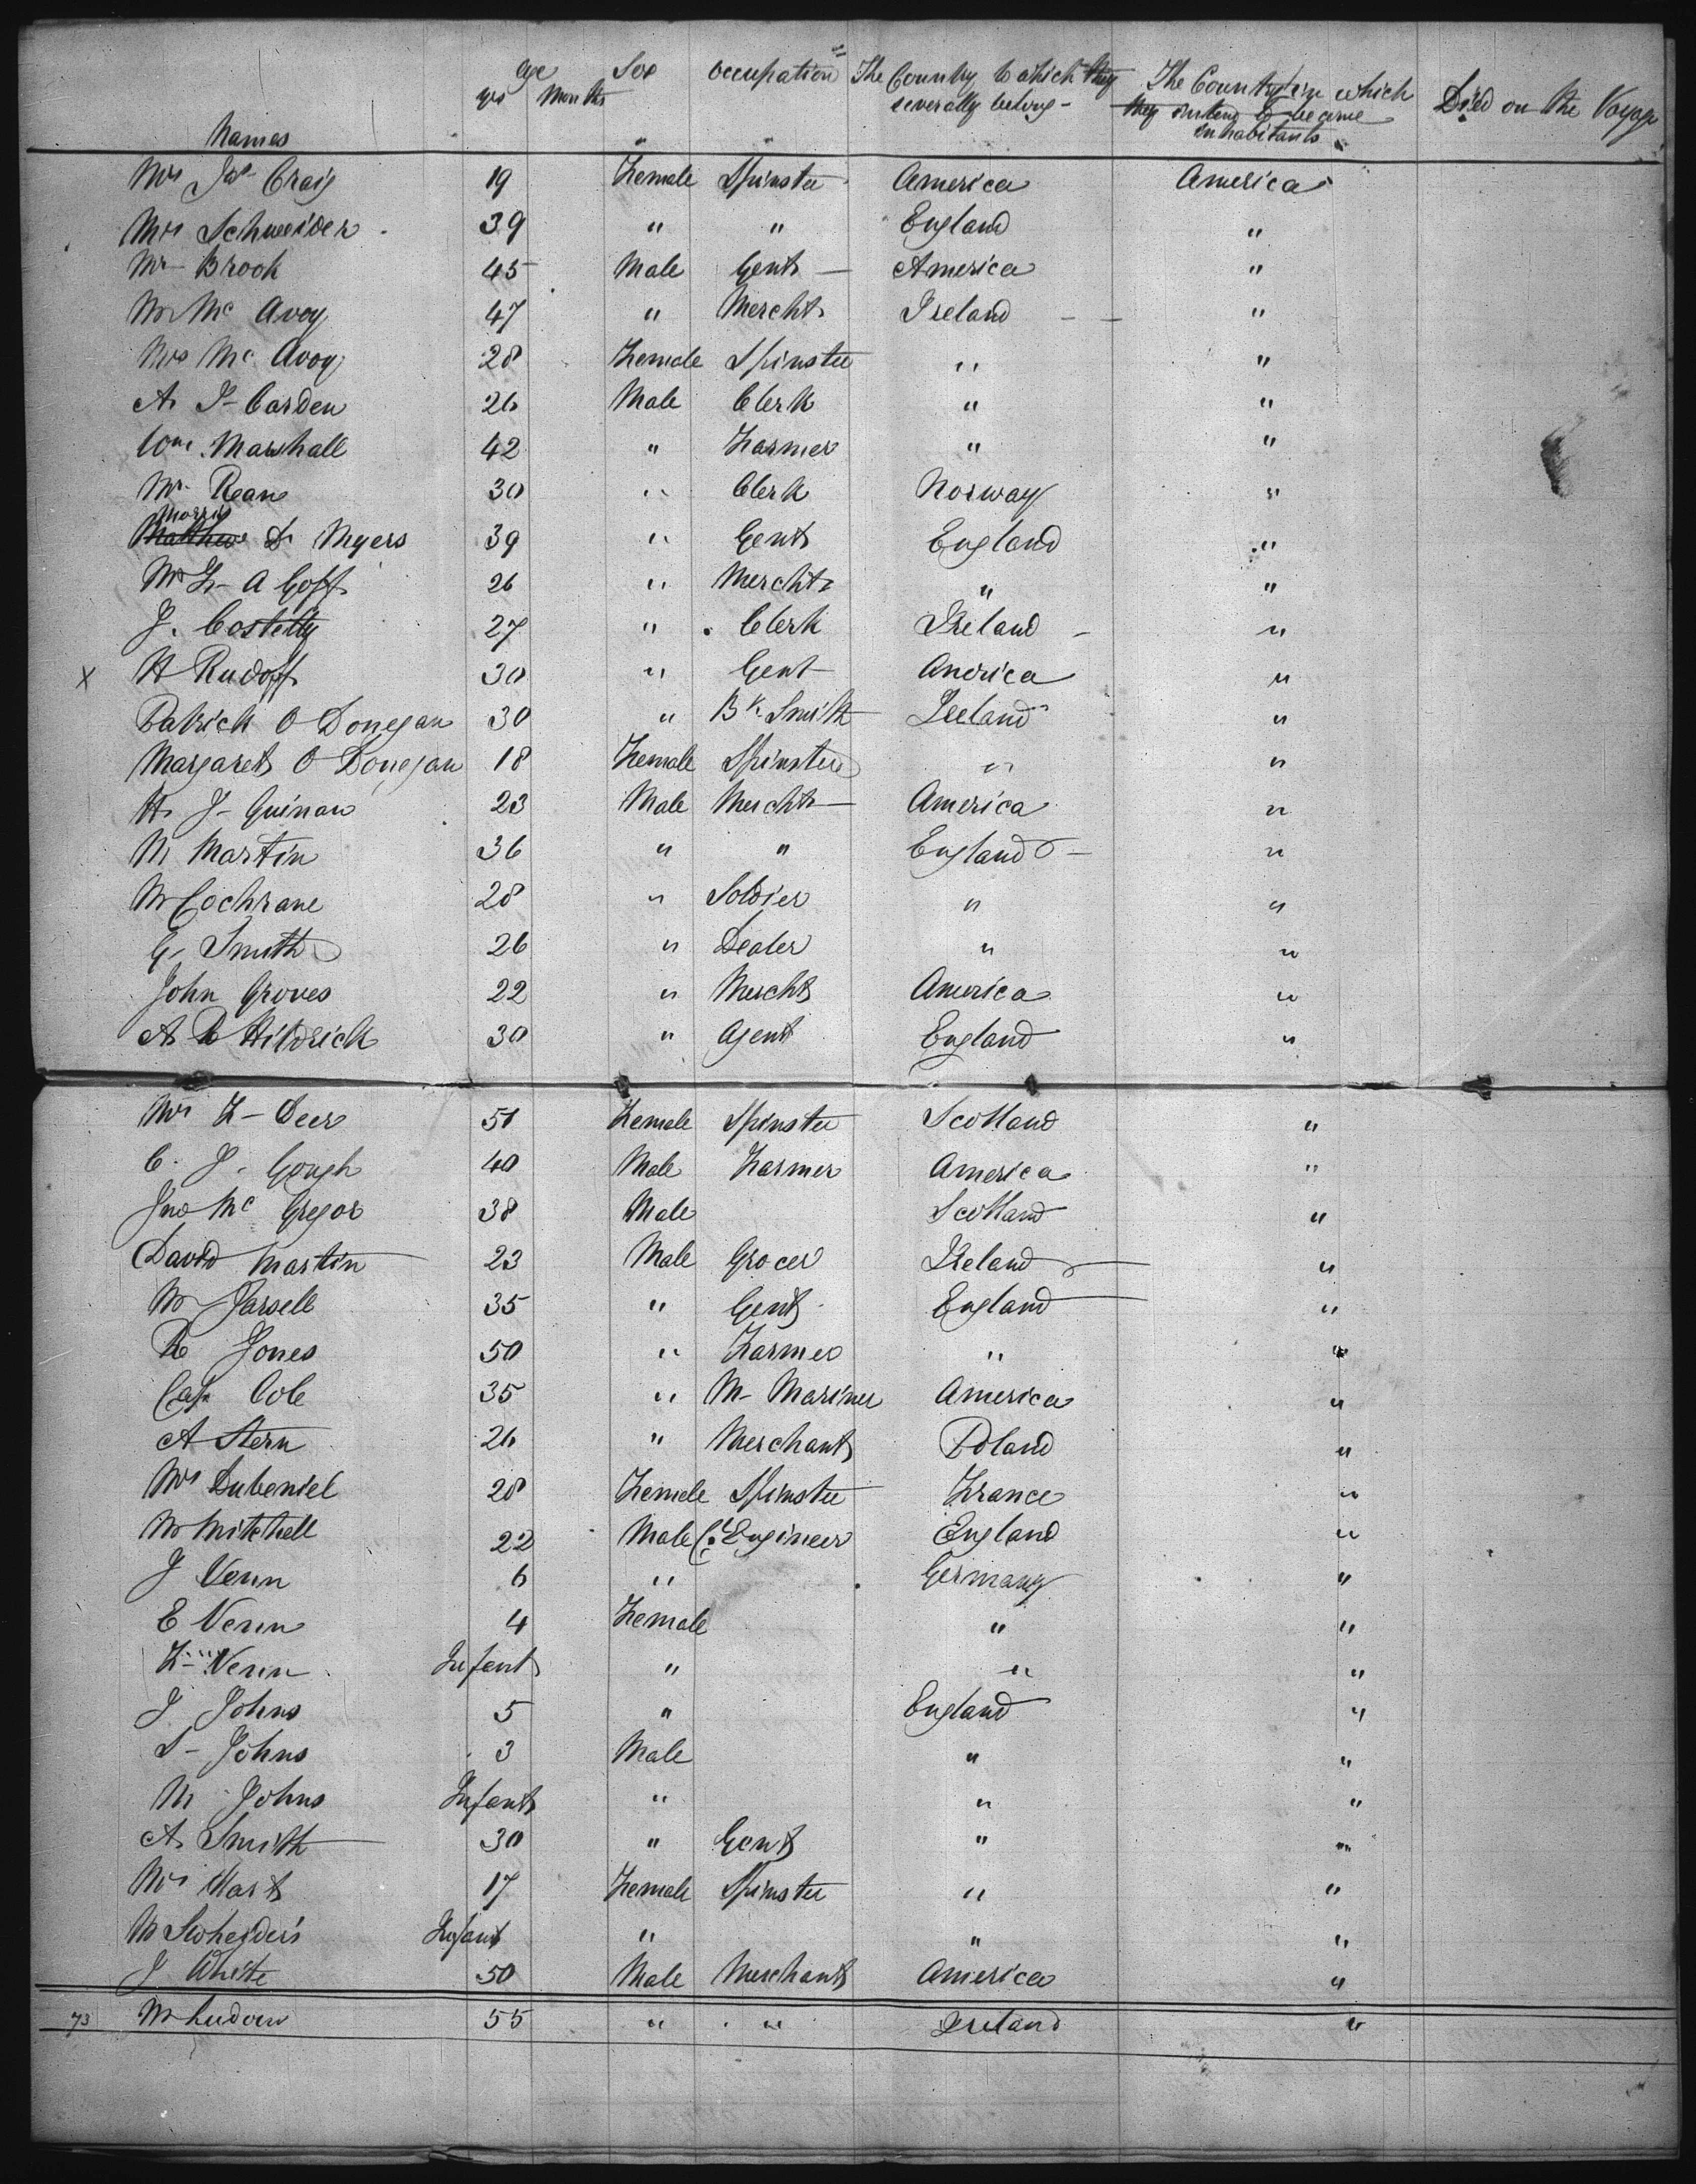 Names Age yrs Months Sex Occupation The Country to which they severally belong - The Country in which they intend to become inhabitants Died on the Voyage
Mrs Jas Craig 19 Female Spinster America America
Mrs Schweider 39 " " England "
Mr Brook 45 Male Gent America "
Mr Mc Avoy 47 " Mercht Ireland "
Mrs Mc Avoy 28 Female Spinster " "
A. J- Carden 26 Male Clerk " "
Wm Marshall 42 " Farmer " "
Mr Rean 30 " Clerk Norway "
Morris
Matthew D Myers 39 " Gent England "
Mr F- A Goff 26 " Mercht " "
J. Costelly 27 " Clerk Ireland "
X H Rudoff 30 " Gent America "
Patrick O Donegan 30 " Bk Smith Ireland "
Margaret O Donegan 18 Female Spinster " "
H. J- Guinan 23 Male Mercht America "
M Martin 36 " " England "
Mr Cochrane 28 " Soldier " "
G. Smith 26 " Dealer " "
John Groves 22 " Mercht America "
A R Hildrich 30 " Agent England "
Mrs F- Deer 51 Female Spinster Scotland "
C. J. Gough 40 Male Farmer America "
Jno Mc Gregor 38 Male Scotland "
David Martin 23 Male Grocer Ireland "
Mr Jarsell 35 " Gent England "
R Jones 50 " Farmer " "
Cap Cole 35 " M- Mariner America "
A Stern 26 " Merchant Poland "
Mrs Dubeniel 28 Female Spinster France "
Mr Mitchell 22 Male Cl Engineer England "
J Venn 6 " Germany "
E Venn 4 Female " "
F- Venn Infant " " "
J Johns 5 " England "
S- Johns 3 Male " "
M Johns Infant " " "
A. Smith 30 " Gent " "
Mrs Hart 17 Female Spinster " "
M Infant " " "
J White 50 Male Merchant America "
73 Mr 55 " " Ireland "